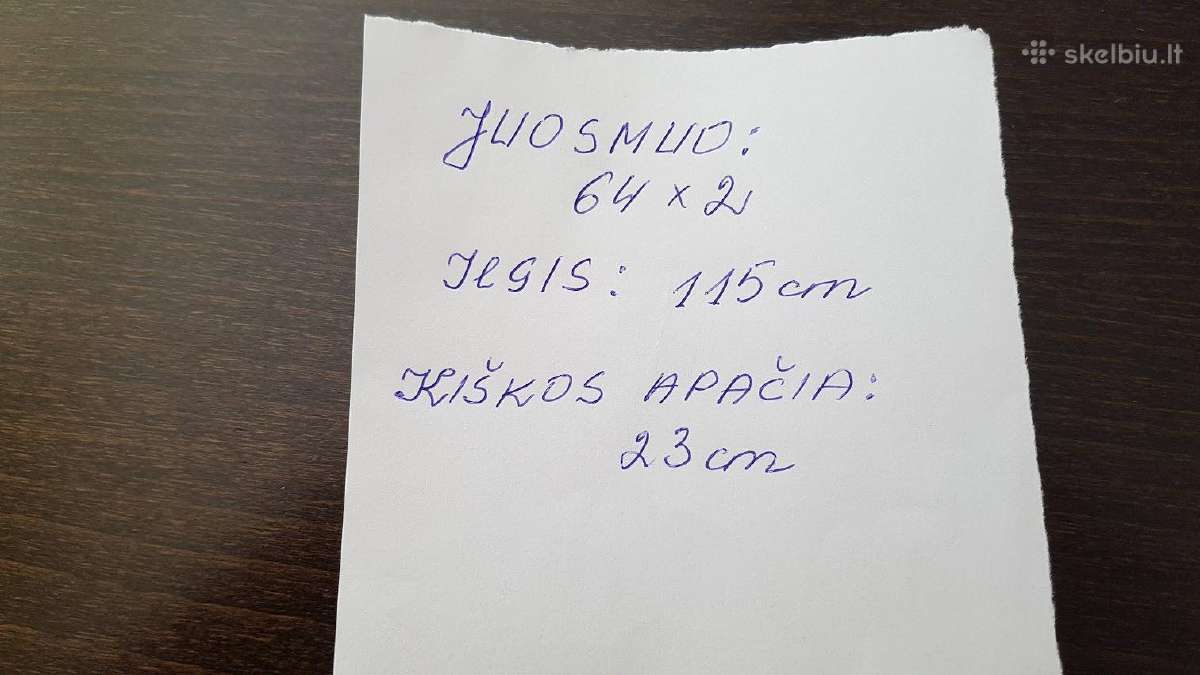 skelbiu.lt
JUOSMUO:
64 x 2
IlGIS: 115 cm
KIŠKOS APAČIA:
23 cm